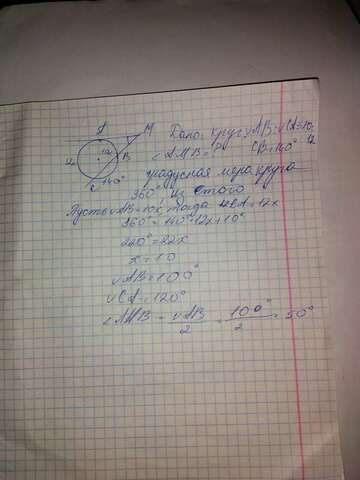 A M Дано: круг, ∪AB:∪CA=10:12
10
12 B
C 140°
∠AMB=? CB=140°
градусная мера круга
360°, из этого
Пусть ∪AB=10x, тогда ∪CA=12x
360°=140°+12x+10°
220°=22x
x=10
∪AB=100°
∪CA=120°
∠AMB = ∪AB/2 = 100°/2 = 50°